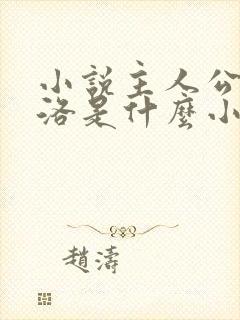 小說主人公
洛是什麼小
趙濤